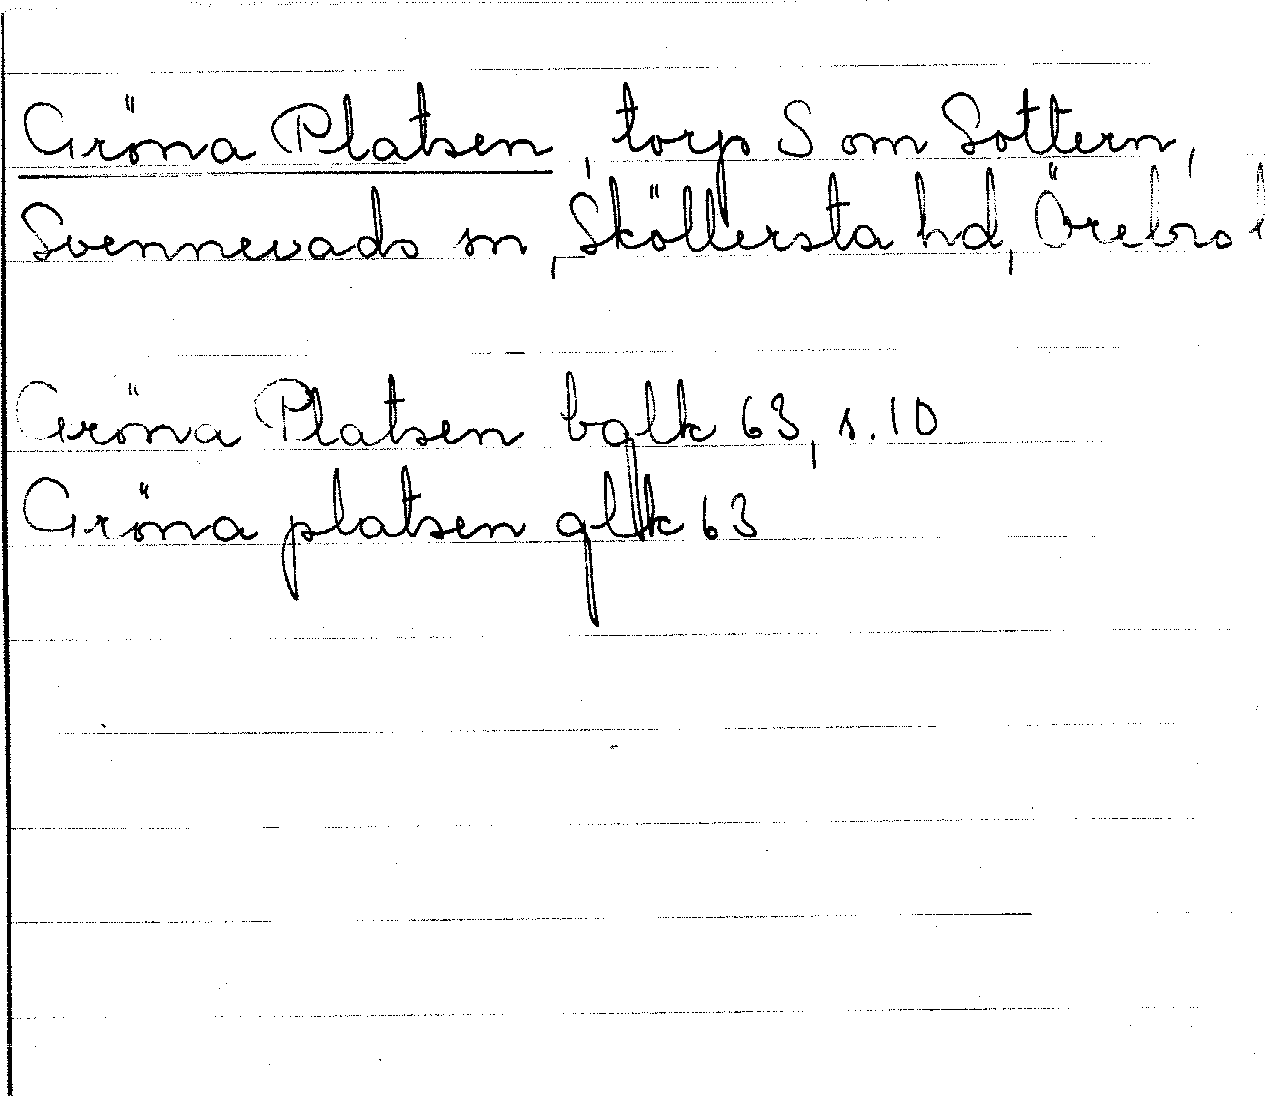 Gröna Platsen, torp S om Sottern,
Svennevads sn, Sköllersta hd, Örebro l
Gröna Platsen bglk 63, s. 10
Gröna platsen glk 63